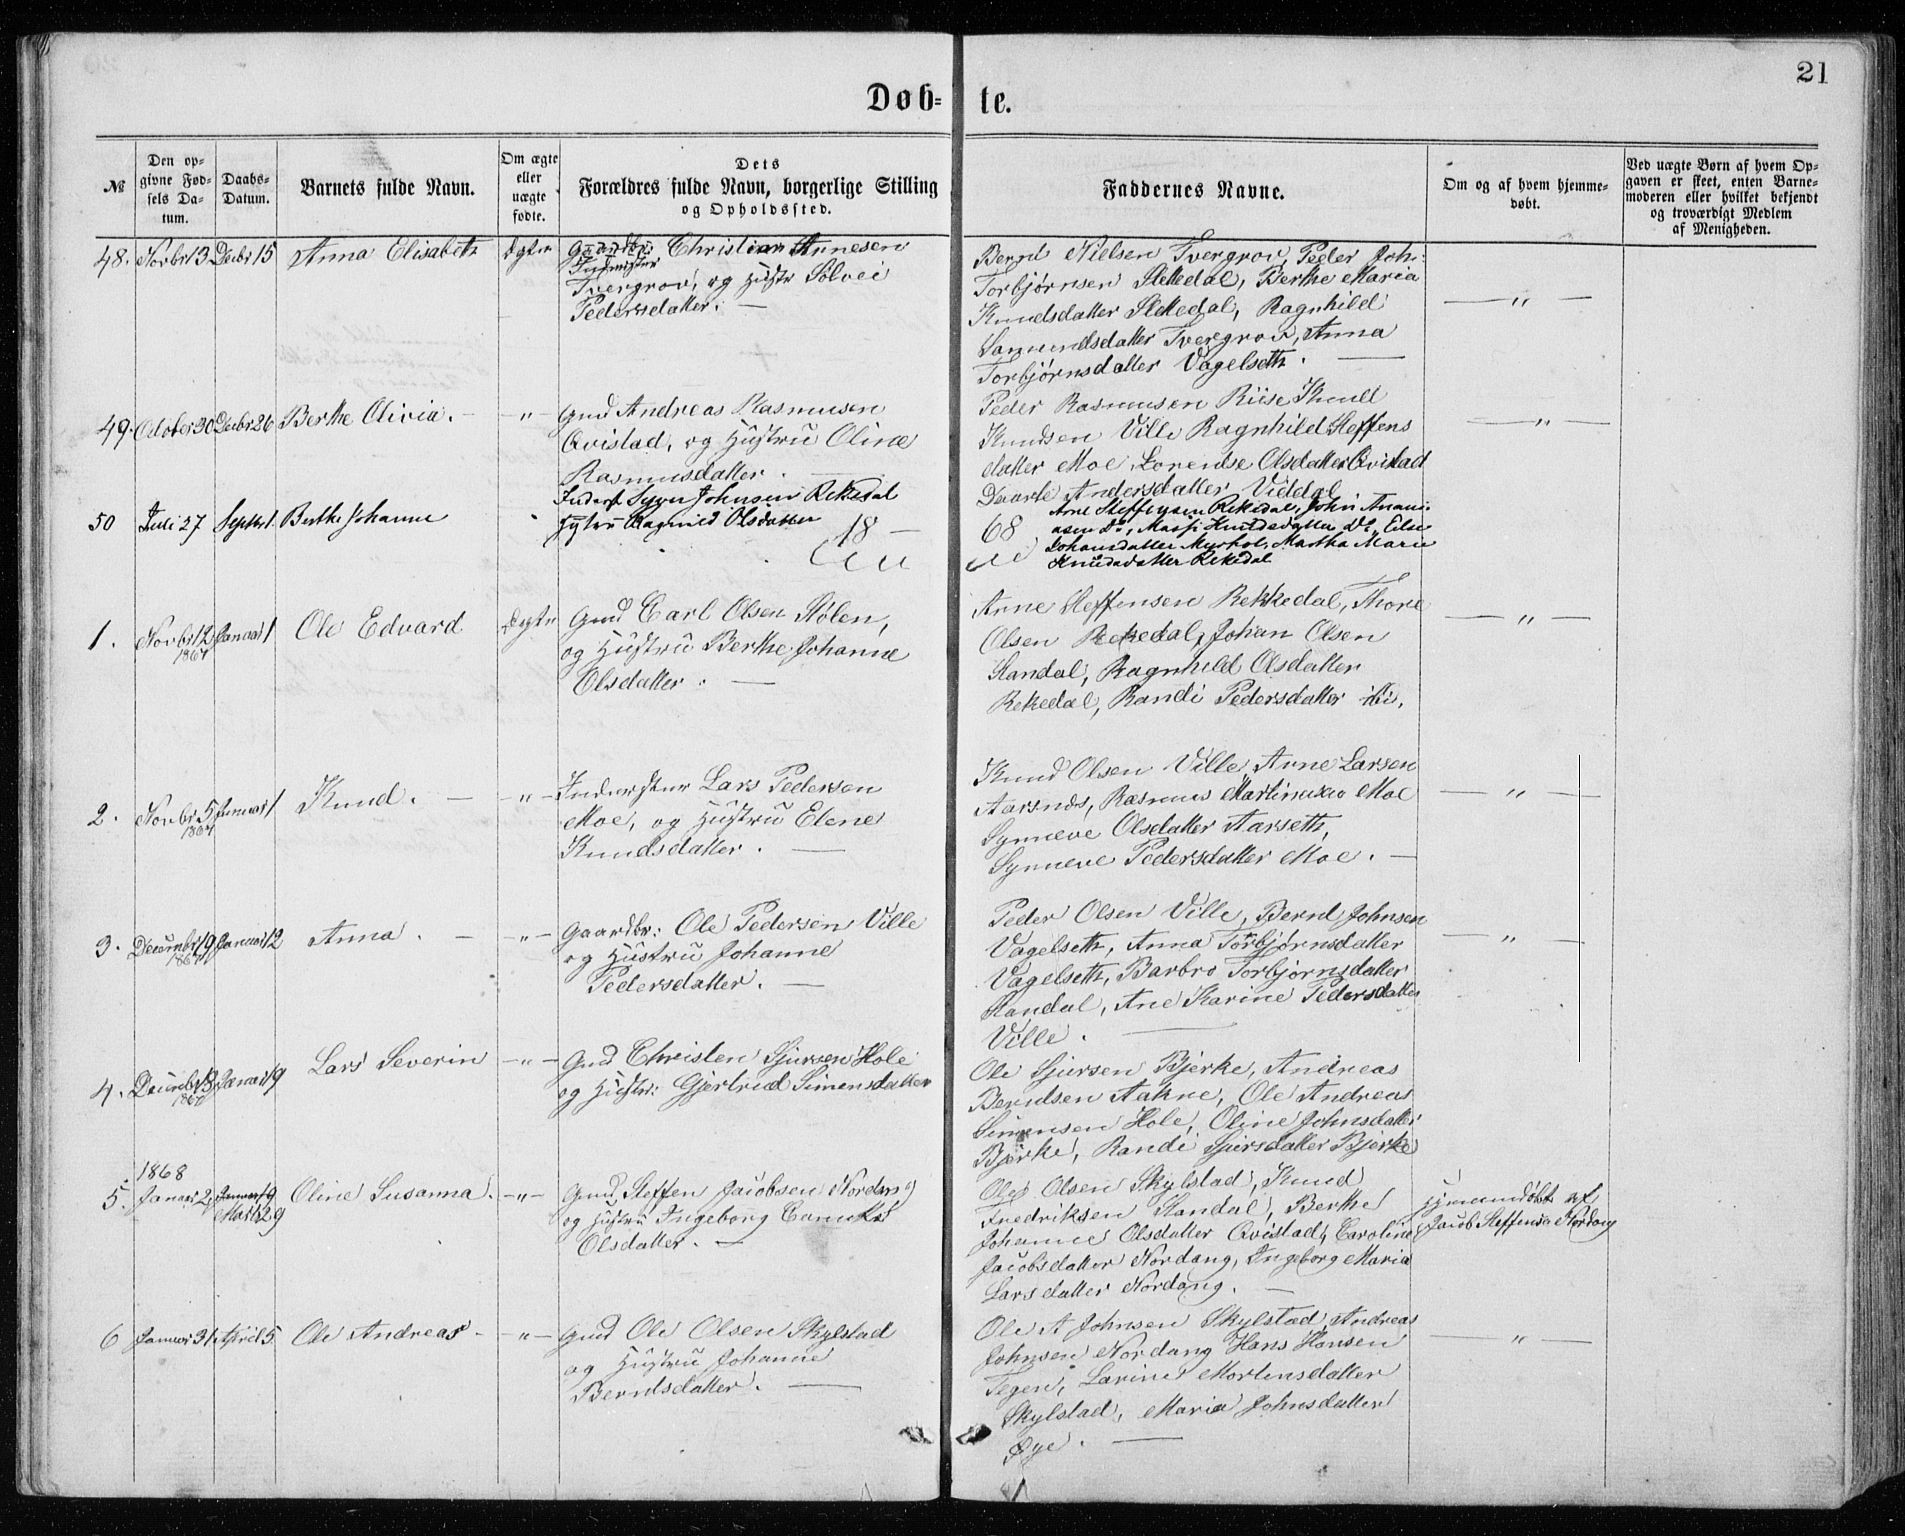 21
Døb= te.
№
Den op-
givne Fød-
sels Da-
tum.
Daabs-
Datum.
Barnets fulde Navn.
Om ægte
eller
uægte
fødte.
Dets
Forældres fulde Navn, borgerlige Stilling
og Opholdssted.
Faddernes Navne.
Om og af hvem hjemme-
døbt.
Ved uægte Børn af hvem Op-
gaven er skeet, enten Barne-
moderen eller hvilket bekjendt
og troværdigt Medlem
af Menigheden.
48. Novbr 13 Decbr 15 Anna Elisabeth Ægte Gaardbr: Christian Arnesen
Inderster
Tvergrov, og Hustr Sølvei
Pedersdatter. —
Bernd Nielsen Tvergrov, Peder Joh:
Torbjørnsen Slettedal, Berthe Maria
Knudsdatter Slettedal, Ragnhild
Samundsdatter Tvergrov, Anna
Torbjørnsdatter Vagelseth. —
— " —
49. October 30 Decbr 26 Berthe Olivia. — — " — Gmd Andreas Rasmusen
Qvistad, og Hustru Oline
Rasmusdatter. —
Peder Rasmusen Riise Knud
Knudsen Ville Ragnhild Steffens
datter Moe, Lorendse Olsdatter Qvistad
Andersdatter Viddal
— " —
50 Juli 27 Septbr 1. Berthe Johanne
Inderst Syver Johnsen Rekedal
Hustru Ragnild Olsdatter
18 —
68
Arne Steffensen Rekedal, John Anani-
asen Do, Massi Knudsdatter Do, Else
Johansdatter Myrhol, Martha Marie
Knudsdatter Rekedal
1. Novbr 12 Januar 1 Ole Edvard Ægte Gmd Carl Olsen Stølen,
1867
og Hustru Berthe Johanne
Olsdatter. —
Arne Steffensen Rekkedal, Thore
Olsen Rekedal, Johan Olsen
Standal, Ragnhild Olsdatter
Rekedal, Randi Pedersdatter ibi.
— " —
2. Novbr 5 Januar 1 Knud. — — " — Inderster Lars Pedersen
1867
Moe, og Hustru Elene
Knudsdatter. —
Knud Olsen Ville, Arne Larsen
Aarsnes, Rasmus Martinusen Moe
Synneve Olsdatter Aarseth,
Synneve Pedersdatter Moe. —
— " —
3. Decembr 19 Januar 12 Anna. — — " — Gaardbr: Ole Pedersen Ville
1867
og Hustru Johanne
Pedersdatter. —
Peder Olsen Ville, Bernd Johnsen
Vagelseth, Anna Torbjørnsdatter
Vagelseth, Barbro Torbjørnsdatter
Standal, Ane Karine Pedersdatter
Ville. —
— " —
4. Decembr 13 Januar 19 Lars Severin — " — Gmd Christen Sjursen Hole
1867
og Hustr: Gjertrud Simensdatter
Ole Sjursen Bjerke, Andreas
Berndsen Aakne, Ole Andreas
Simensen Hole, Oline Johnsdatter
Bjerke, Randi Sjursdatter Bjerke
1868
5. Januar 2 Januar 19 Oline Susanna. — " — Gmd, Steffen Jacobsen Nordang
Marts 29
og Hustru Ingeborg
Olsdatter. —
Ole Olsen Skylstad, Knud
Fredriksen Standal, Berthe
Johanne Olsdatter Qvistad, Caroline
Jacobsdatter Nordang, Ingeborg Maria
Larsdatter Nordang. —
Hjemmedøbt af
Jacob Steffensen Nordang
6 Januar 31 April 5 Ole Andreas — — " — Gmd Ole Olsen Skylstad
og Hustru Johanne
Berndsdatter. —
Ole A Johnsen Skylstad, Andreas
Johnsen Nordang Hans Hansen
Tegen, Larine Mortensdatter
Skylstad, Maria Johnsdatter
Øye. —
— " —